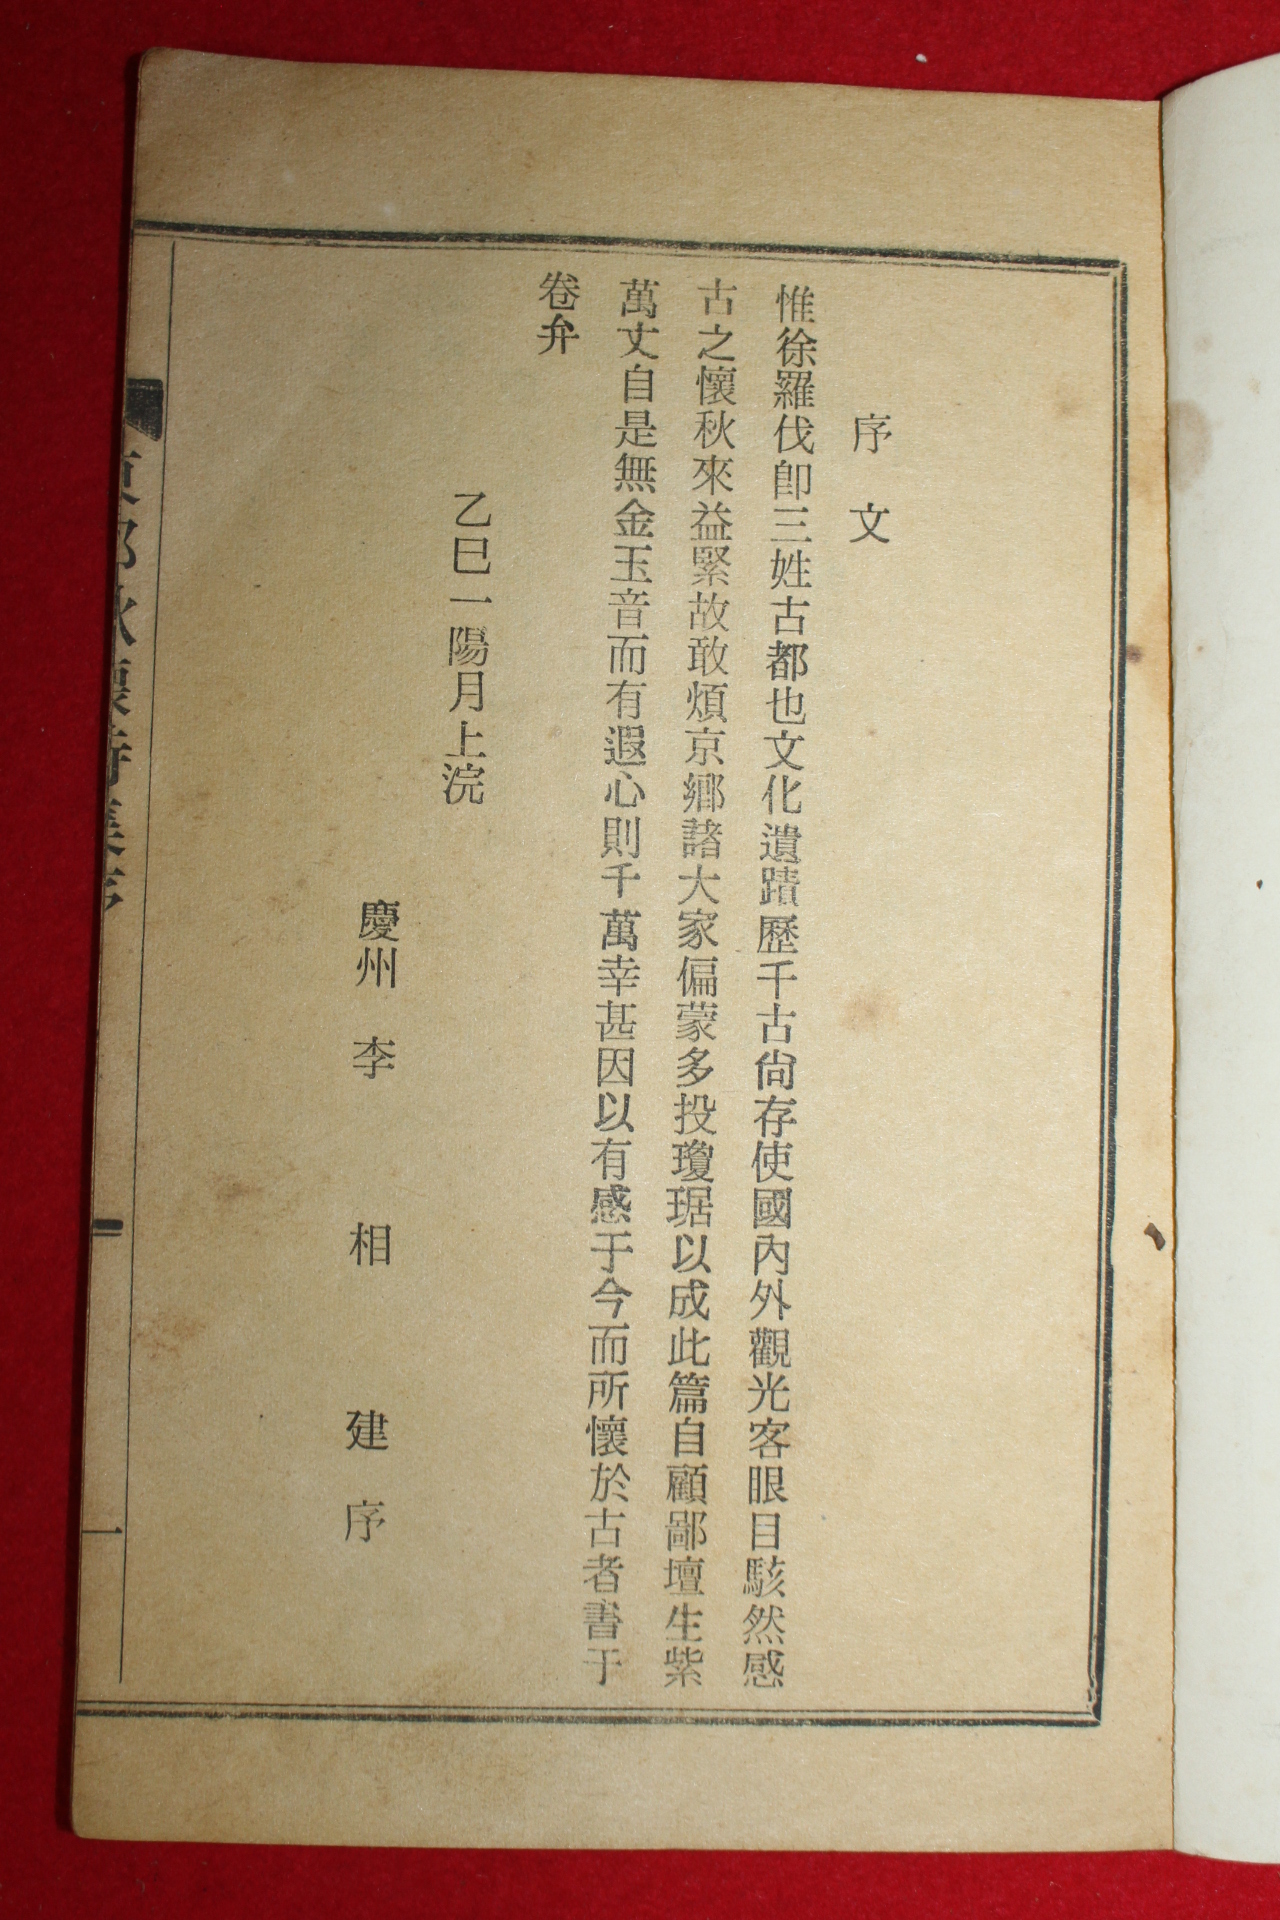 序文
惟徐羅伐卽三姓古都也文化遺蹟歷千古尙存使國內外觀光客眼目駭然感
古之懷秋來益緊故敢煩京鄕諸大家偏蒙多投瓊琚以成此篇自顧鄙壇生紫
萬丈自是無金玉音而有遐心則千萬幸甚因以有感于今而所懷於古者書于
卷弁
乙巳一陽月上浣
慶州 李相建序
東都秋懷詩集序
一